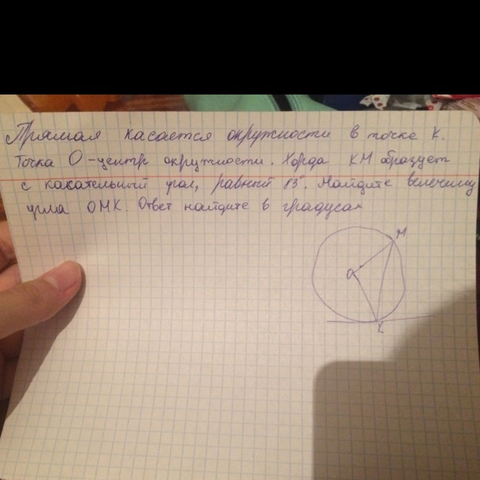 Прямая касается окружности в точке К.
Точка О - центр окружности. Хорда КМ образует
с касательной угол, равный 83°. Найдите величину
угла ОМК. Ответ найдите в градусах
М
О
К